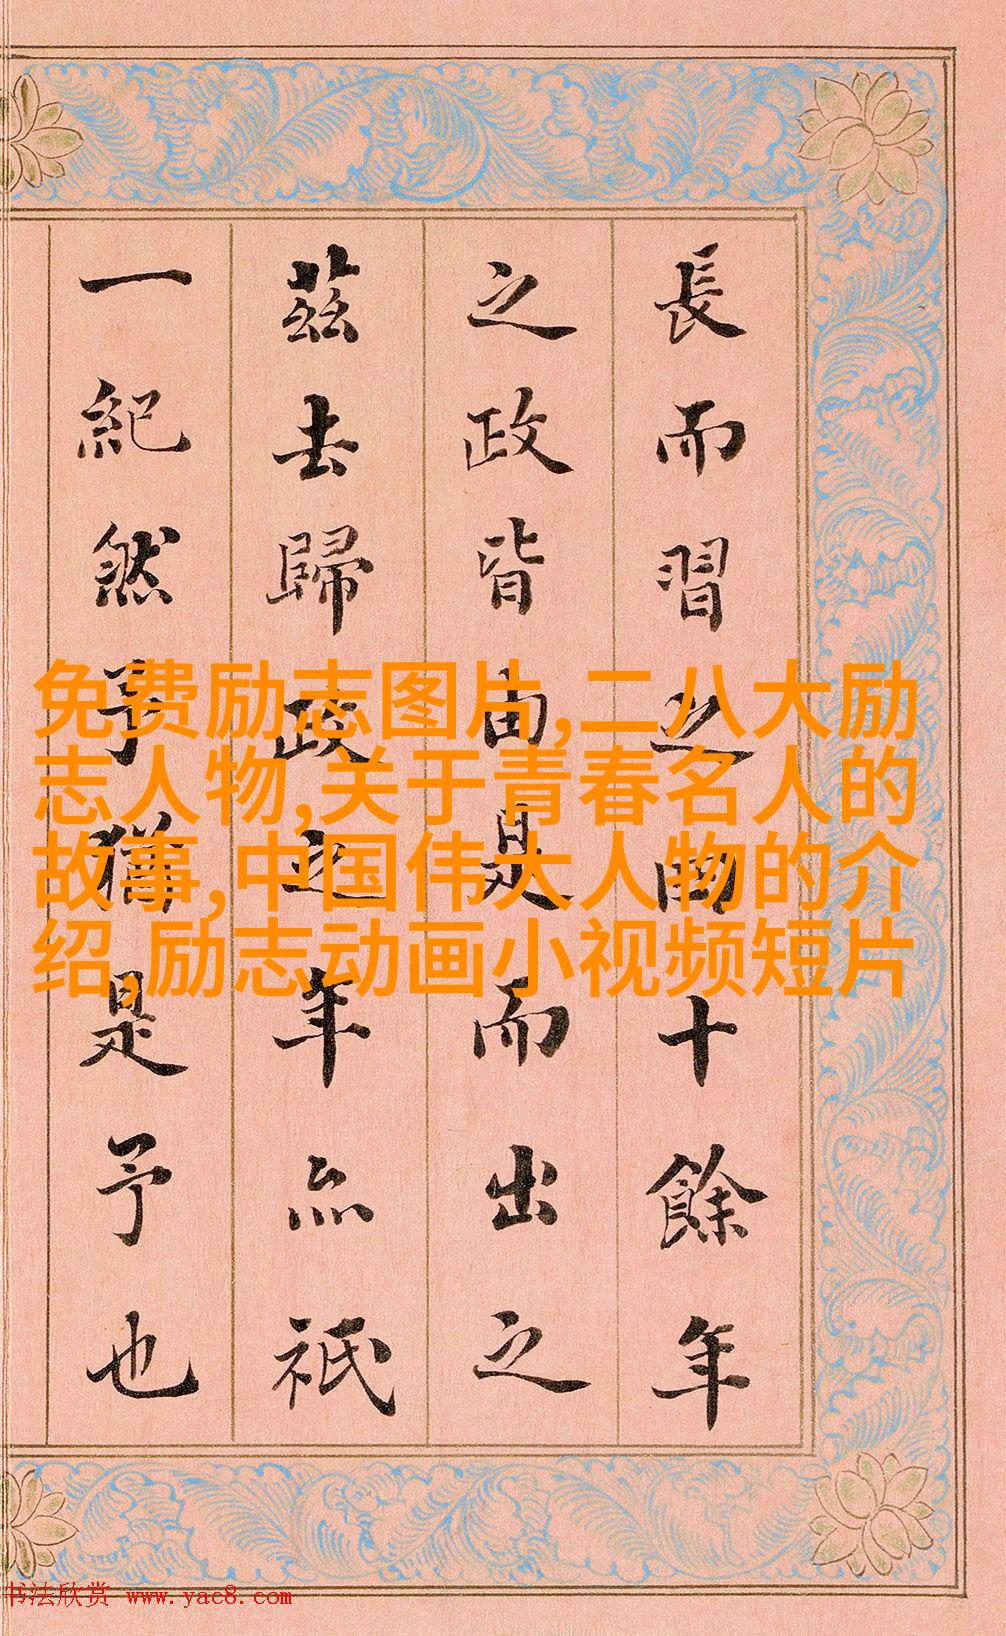 長而習之四十餘年
之政皆由是而出之
茲去歸政之年亦祗
一紀然予猶是予也
免费励志图片,二八大励
志人物,关于青春名人的
故事,中国伟大人物的介
绍,励志动画小视频短片
书法欣赏 www.yac8.com